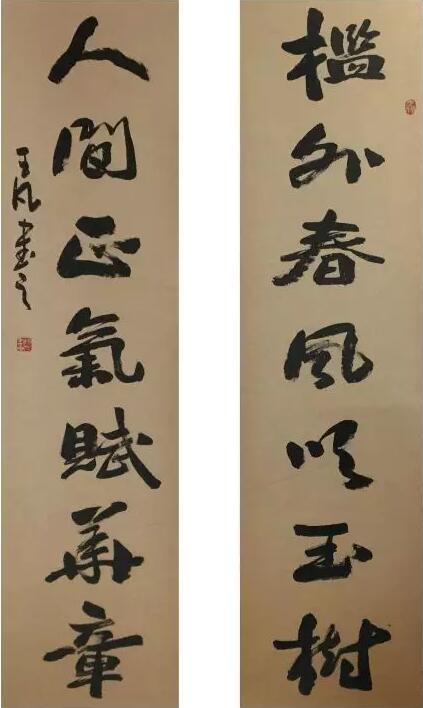 檻外春風吹玉樹
人間正氣賦華章
王 書之